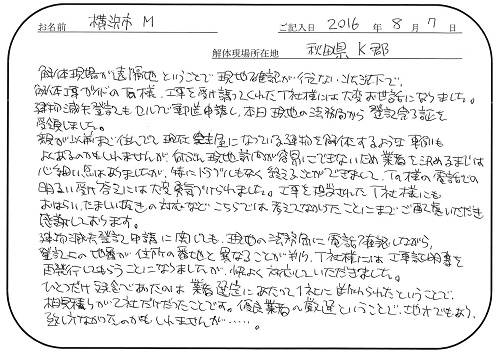 お名前 横浜市 M ご記入日 2016 年 8 月 7 日
解体現場所在地 秋田県 K郡
解体現場が遠隔地ということで現地確認が行えない状況下で、
解体工事ガイドのTa様、工事を受け請ってくれたT社様には大変お世話になりました。
建物滅失登記もセルフで郵送申請し、本日現地の法務局から登記完了証を
受領しました。
親が以前まで住んでて現在空屋になっている建物を解体するような事例も
よくあるのかもしれませんが、何ぶん現地訪問が容易にできないため業者を決めるまでは
心細い点はありましたが、特にトラブルもなく終えることができまして、Ta様の電話での
明るい受け答えには大変気がいられました。工事を担当されたT社様にも
おはらい、たましいぬきの対応などこちらでは考えてなかったことにまでご配慮いただき
感謝しております。
建物滅失登記申請に関しても、現地の法務局に電話で確認しながら、
登記上の地番が住所の番地と異なることが判り、T社様には工事証明書を
再発行してもらうことになりましたが、快よく対応していただきました。
ひとつだけ残念であったのは業者選定にあたって1社に断わられたということで、
相見積りが2社だけだったことです。優良業者の厳選ということで、地方でもあり、
致し方なかったのかもしれませんが……。